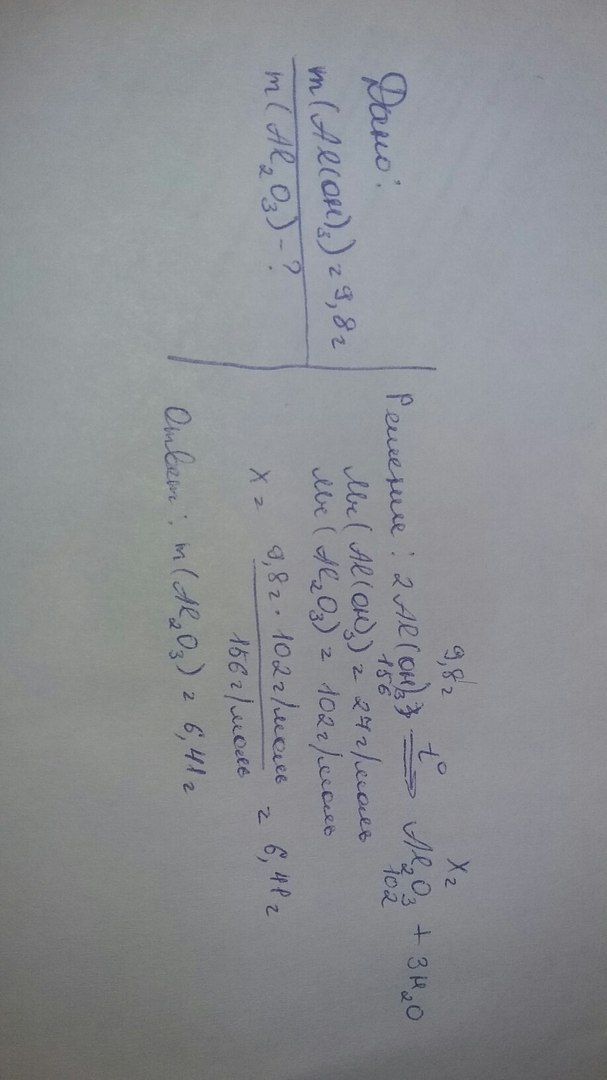 Дано:
m(Al(OH)₃) = 9,8г
m(Al₂O₃) - ?
9,8г xг
Решение: 2Al(OH)₃ t° ⟹ Al₂O₃ + 3H₂O
156 102
Mr(Al(OH)₃) = 27г/моль
Mr(Al₂O₃) = 102г/моль
x = 9,8г · 102г/моль / 156г/моль = 6,41г
Ответ: m(Al₂O₃) = 6,41г